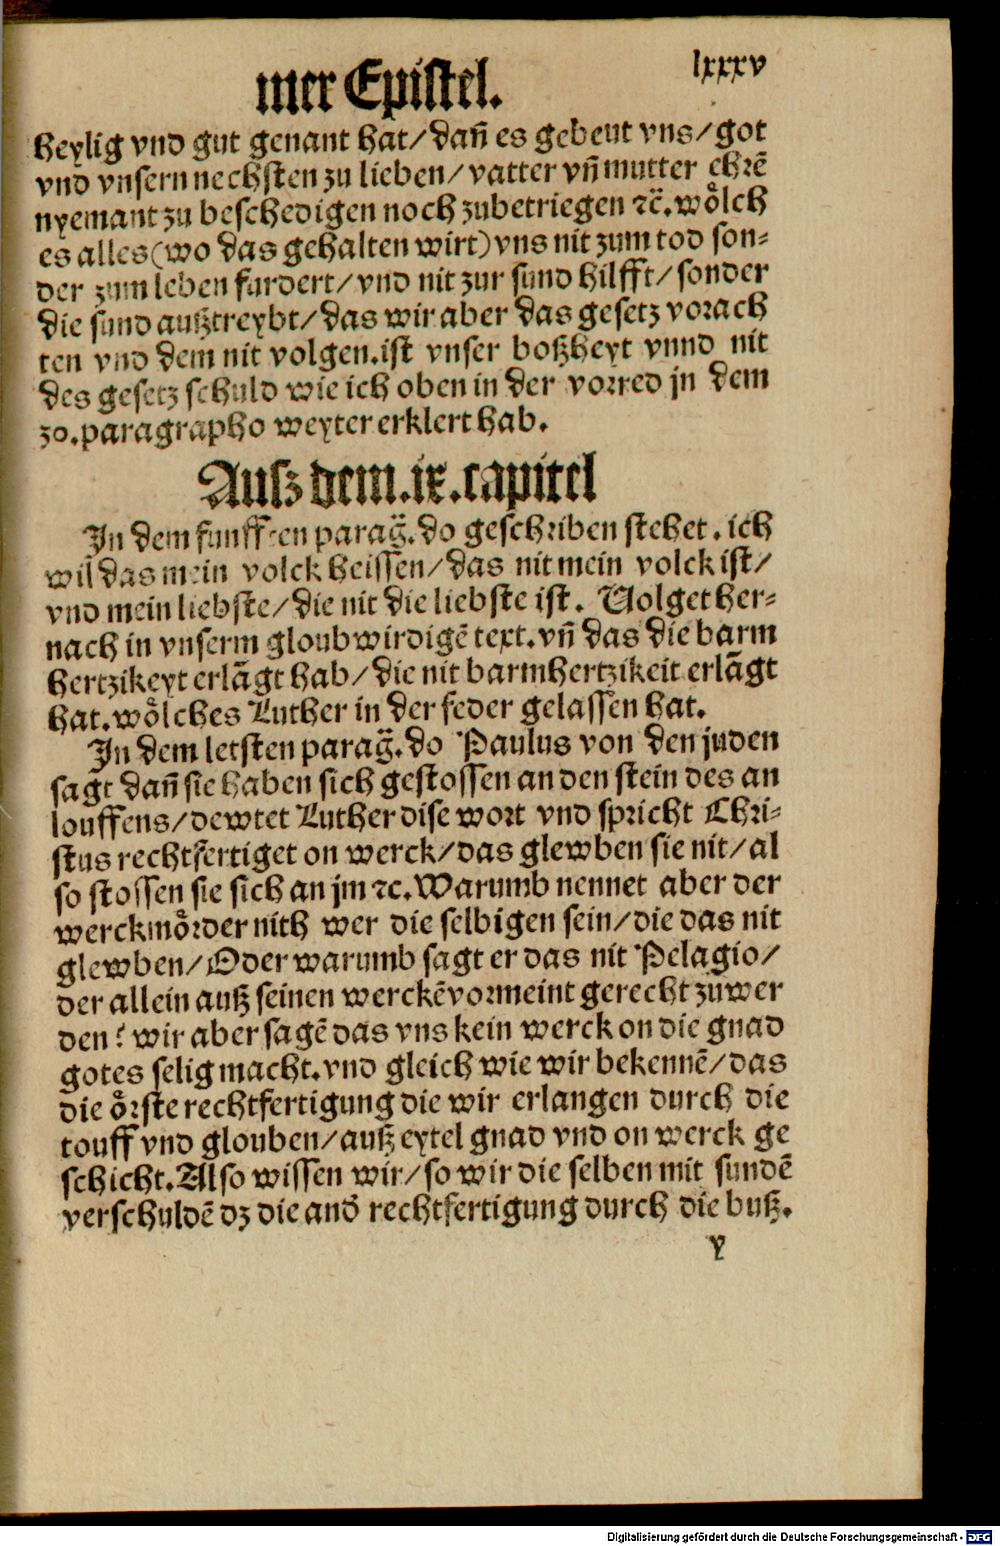 mer Epistel.
lxxxv
heylig vnd gut genant hat/dañ es gebeut vns/got
vnd vnsern nechsten zu lieben/vatter vñ mutter ehrē
nyemant zu beschedigen noch zubetriegen ⁊c̃.wȯlch
es alles(wo das gehalten wirt)vns nit zum tod son⸗
der zum leben furdert/vnd nit zur sund hilfft/sonder
die sund außtreybt/das wir aber das gesetz vorach
ten vnd dem nit volgen.ist vnser boßheyt vnnd nit
des gesetz schuld wie ich oben in der vorred jn dem
zo.paragrapho weyter erklert hab.
Auß dem.ix.capitel
In dem funfften parag̃.do geschriben stehet.ich
wil das mein volck heissen/das nit mein volck ist/
vnd mein liebste/die nit die liebste ist. Volget her⸗
nach in vnserm gloubwirdigē text.vñ das die barm
hertzikeyt erlāgt hab/die nit barmhertzikeit erlāgt
hat.wȯlches Luther in der feder gelassen hat.
In dem letsten parag̃.do Paulus von den juden
sagt dañ sie haben sich gestossen an den stein des an
louffens/dewtet Luther dise wort vnd spricht Chri⸗
stus rechtfertiget on werck/das glewben sie nit/al
so stossen sie sich an jm ⁊c.Warumb nennet aber der
werckmȯrder nith wer die selbigen sein/die das nit
glewben/Oder warumb sagt er das nit Pelagio/
der allein auß seinen werckē vormeint gerecht zuwer
den? wir aber sagē das vns kein werck on die gnad
gotes selig macht.vnd gleich wie wir bekennē/das
die ȯrste rechtfertigung die wir erlangen durch die
touff vnd glouben/auß eytel gnad vnd on werck ge
schicht.Also wissen wir/so wir die selben mit sundē
verschuldē dz die and̓ rechtfertigung durch die buß.
y
Digitalisierung gefördert durch die Deutsche Forschungsgemeinschaft - DFG